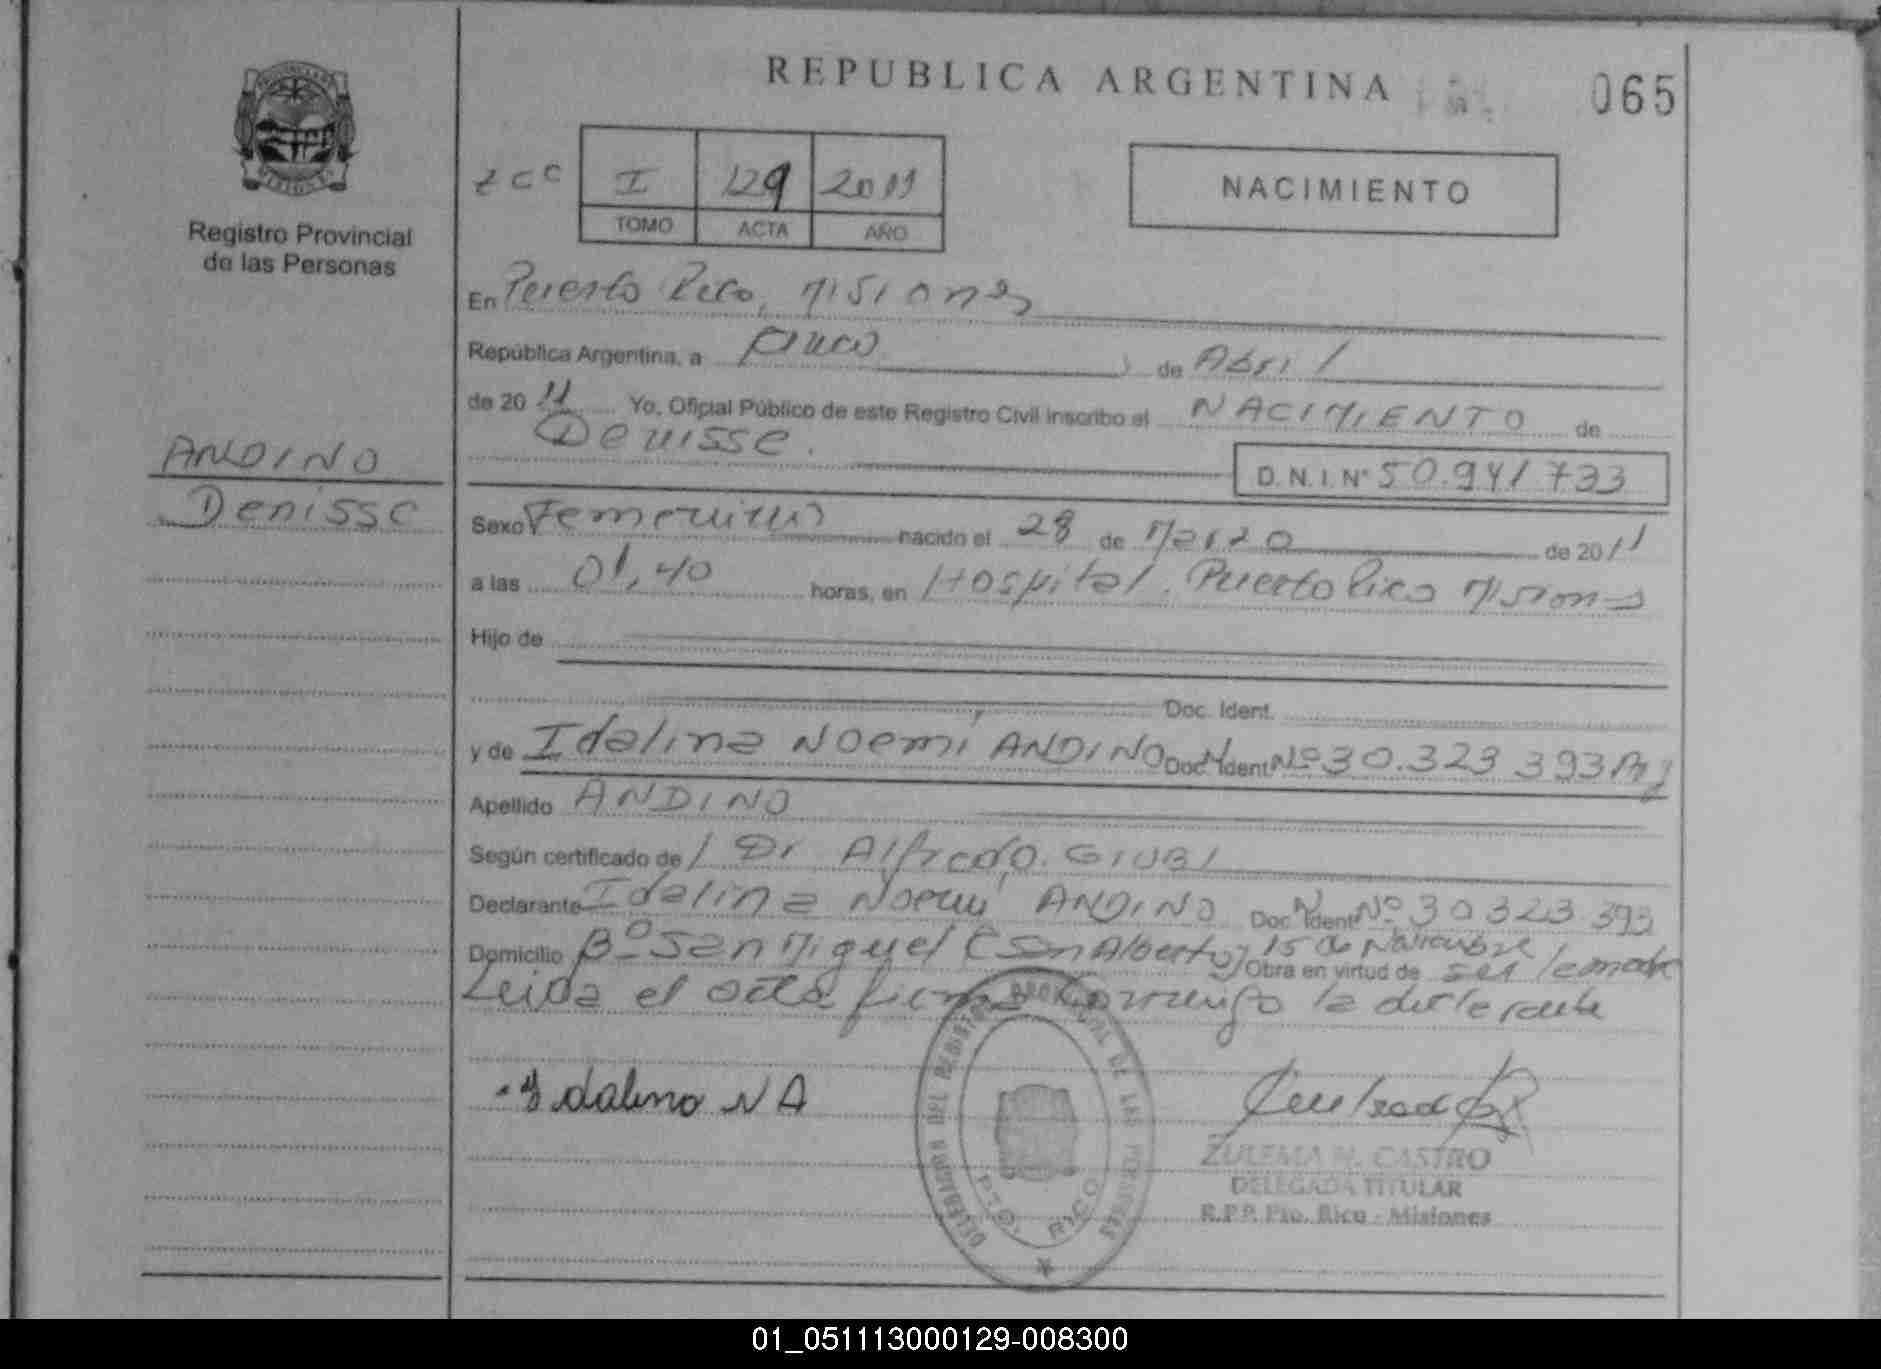 REPUBLICA ARGENTINA
065
Registro Provincial
de las Personas
I 129 2011
TOMO ACTA AÑO
NACIMIENTO
En Puerto Rico, Misiones
República Argentina, a cinco de Abril
de 20 11 Yo, Oficial Público de este Registro Civil inscribo el NACIMIENTO de
Denisse.
D.N.I. Nº 50.941733
ANDINO
Denisse
Sexo Femenino nacido el 28 de Marzo de 2011
a las 01,40 horas, en Hospital, Puerto Rico Misiones
Hijo de
Doc. Ident.
y de Idalina Noemí ANDINO Doc. Ident Nº 30.323 393
Apellido ANDINO
Según certificado de Dr Alfredo, O. GIUBI
Declarante Idalina Noemí ANDINO Doc. Ident Nº 30323.393
Domicilio Bº San Miguel (San Alberto) 15 de Noviembre Obra en virtud de ser la madre
Leida el acta firma conmigo la declarante
Idalina N A
DELEGACION DEL REGISTRO PROVINCIAL DE LAS PERSONAS
PTO. RICO
ZULEMA N. CASTRO
DELEGADA TITULAR
R.P.P. Pto. Rico - Misiones
01_051113000129-008300